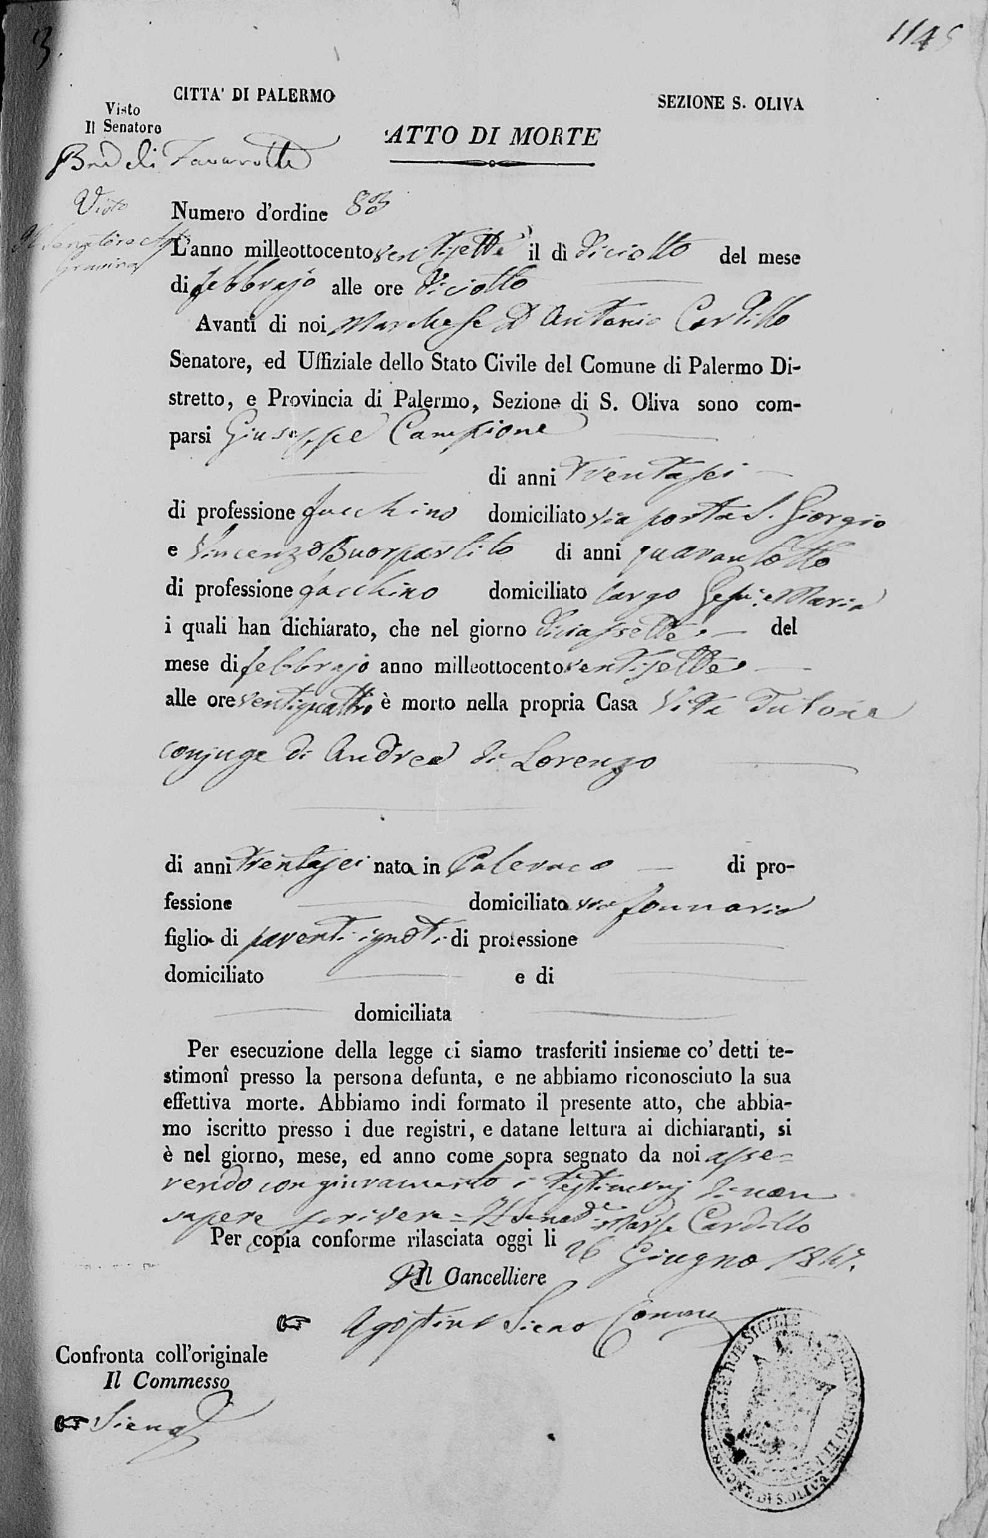 3.
1145
CITTA' DI PALERMO
SEZIONE S. OLIVA
Visto
Il Senatore
ATTO DI MORTE
Visto
Il Senatore
Gravina
Numero d'ordine 83
L'anno milleottocento ventisette il dì diciotto del mese
di febbrajo alle ore diciotto
Avanti di noi Marchese D Antonio Cardillo
Senatore, ed Uffiziale dello Stato Civile del Comune di Palermo Di-
stretto, e Provincia di Palermo, Sezione di S. Oliva sono com-
parsi Giuseppe Campione
di anni trentasei
di professione facchino domiciliato via porta S. Giorgio
e Vincenzo Buonpartito di anni quarantotto
di professione facchino domiciliato largo Gesù e Maria
i quali han dichiarato, che nel giorno diciassette del
mese di febbrajo anno milleottocento ventisette
alle ore ventiquattro è morto nella propria Casa Vita Tutona
conjuge di Andrea di Lorenzo
di anni trentasei nata in Palermo di pro-
fessione domiciliata via fonnaria
figlia di parenti ignoti di professione
domiciliato e di
domiciliata
Per esecuzione della legge ci siamo trasferiti insieme co' detti te-
stimonî presso la persona defunta, e ne abbiamo riconosciuto la sua
effettiva morte. Abbiamo indi formato il presente atto, che abbia-
mo iscritto presso i due registri, e datane lettura ai dichiaranti, si
è nel giorno, mese, ed anno come sopra segnato da noi asse-
rendo con giuramento i testimonj di non
sapere scrivere = Il Senatore Marse Cardillo
Per copia conforme rilasciata oggi li 26 Giugno 1847.
Il Cancelliere
Agostino Siena
Confronta coll'originale
Il Commesso
Siena